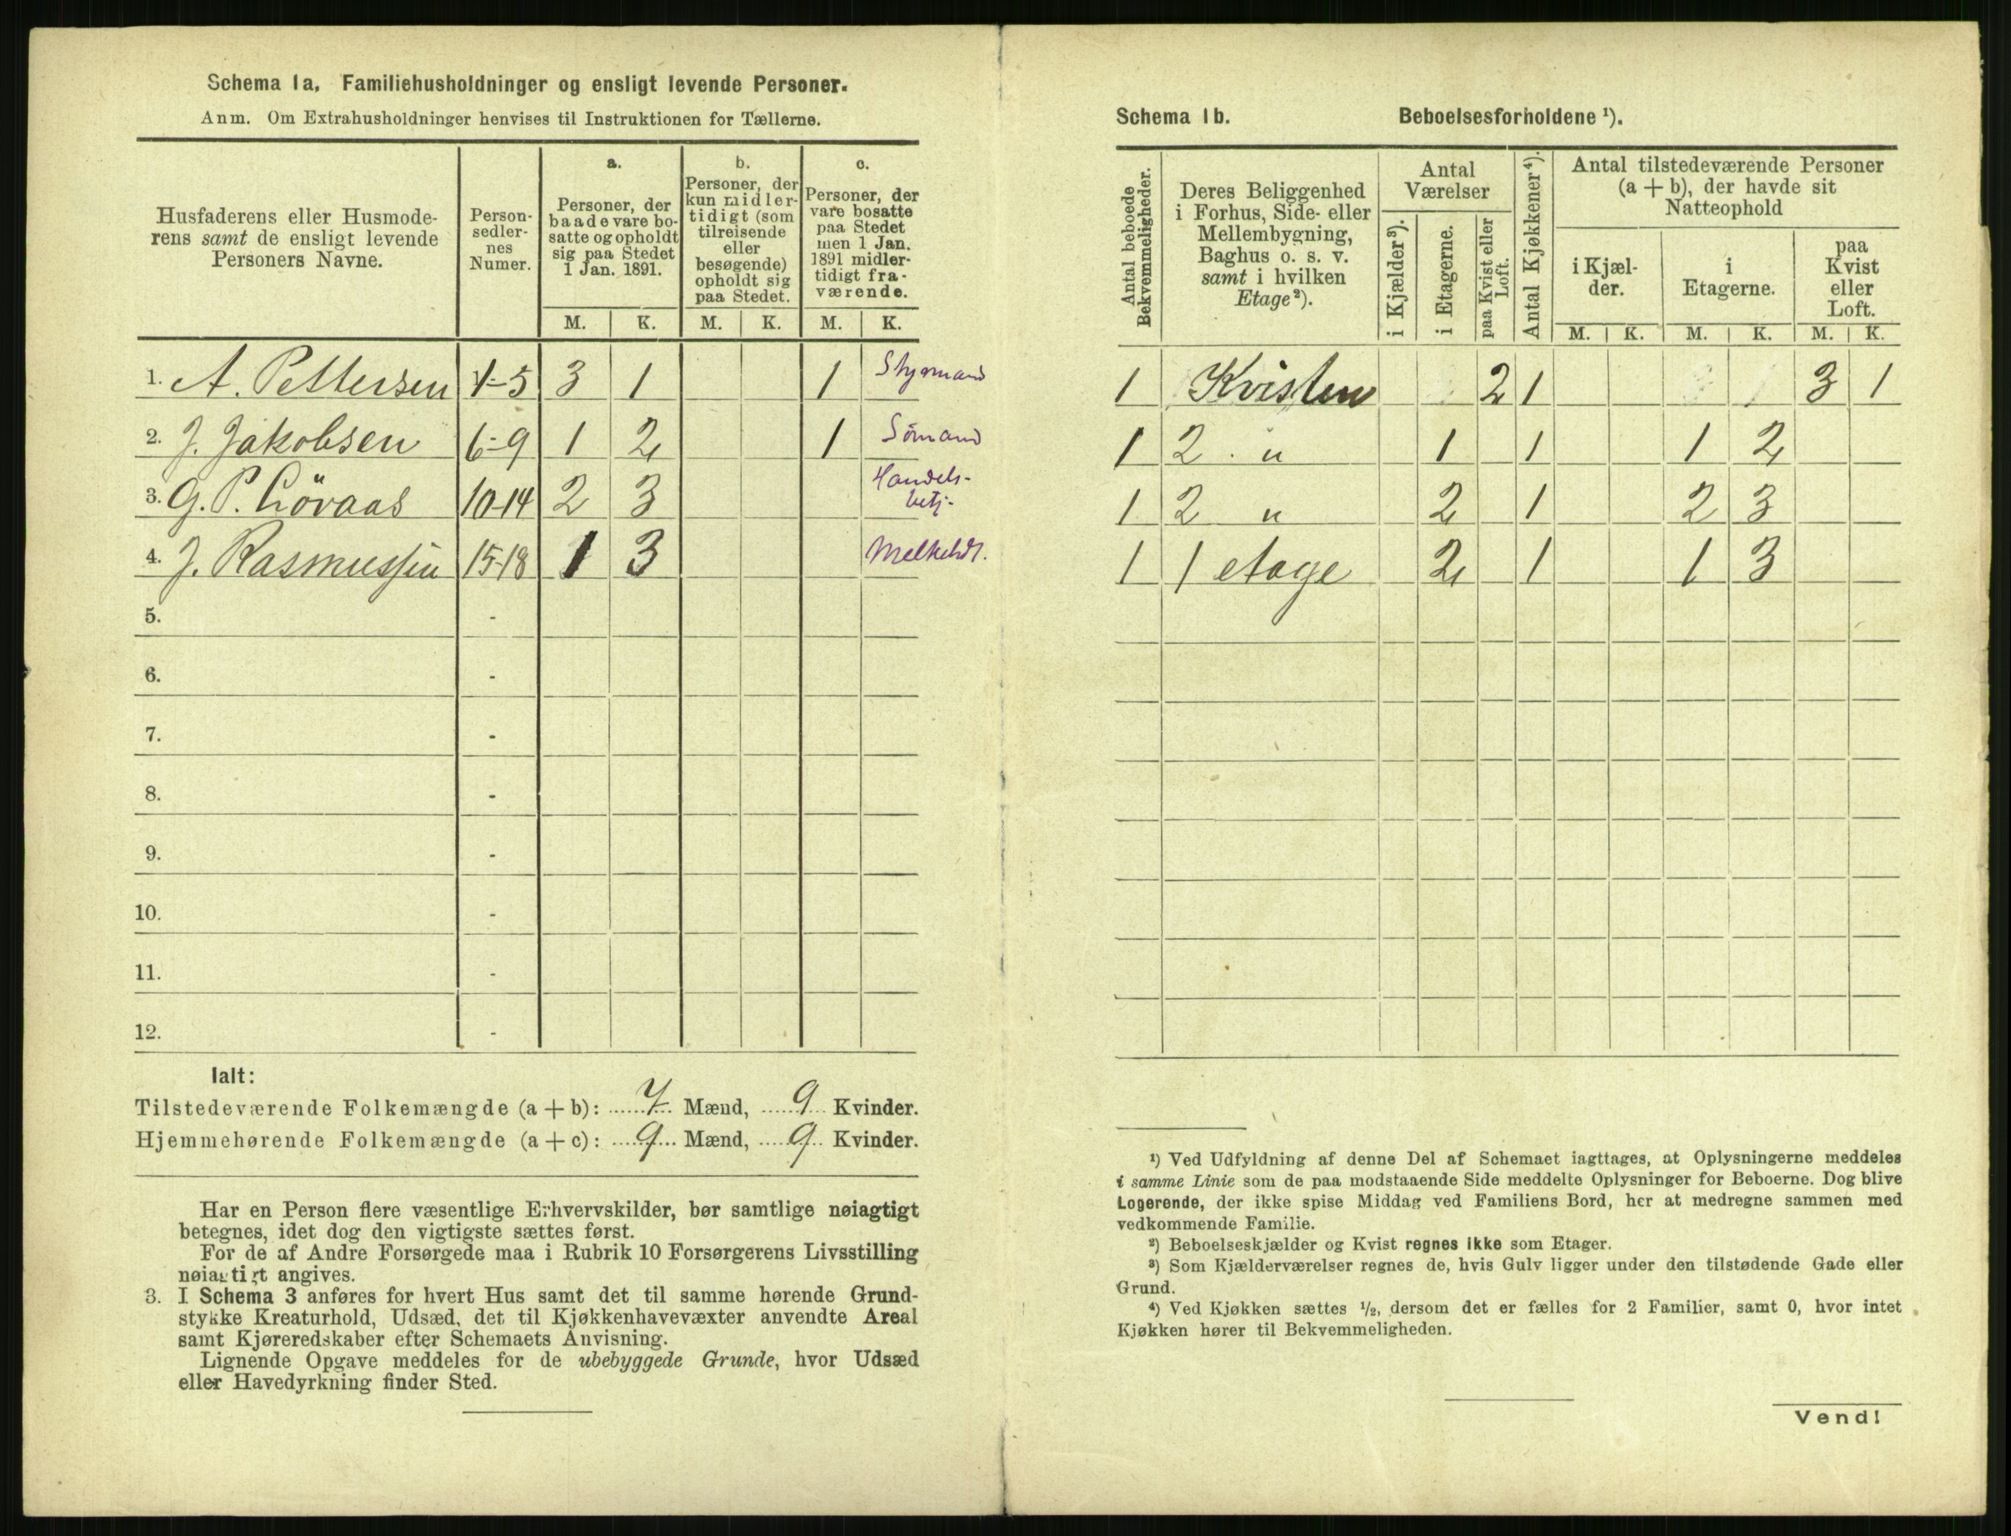 Schema 1a. Familiehusholdninger og ensligt levende Personer.
Anm. Om Extrahusholdninger henvises til Instruktionen for Tællerne.
Husfaderens eller Husmode-
rens samt de ensligt levende
Personers Navne.
Person-
sedler-
nes
Numer.
a.
Personer, der
baade vare bo-
satte og opholdt
sig paa Stedet
1 Jan. 1891.
b.
Personer, der
kun midler-
tidigt (som
tilreisende
eller
besøgende)
opholdt sig
paa Stedet.
c.
Personer, der
vare bosatte
paa Stedet
men 1 Jan.
1891 midler-
tidigt fra-
værende.
M. K. M. K. M. K.
1. A. Pettersen 1-5 3 1 1 Styrmand
2. J. Jakobsen 6-9 1 2 1 Sømand
3. G. P. Lövaas 10-14 2 3 Handels-
betj.
4. J. Rasmussen 15-18 1 3 Melkehdl.
5. -
6. -
7. -
8. -
9. -
10. -
11. -
12. -
Ialt:
Tilstedeværende Folkemængde (a + b): 7 Mænd, 9 Kvinder.
Hjemmehørende Folkemængde (a + c): 9 Mænd, 9 Kvinder.
Har en Person flere væsentlige Erhvervskilder, bør samtlige nøiagtigt
betegnes, idet dog den vigtigste sættes først.
For de af Andre Forsørgede maa i Rubrik 10 Forsørgerens Livsstilling
nøiagtigt angives.
3. I Schema 3 anføres for hvert Hus samt det til samme hørende Grund-
stykke Kreaturhold, Udsæd, det til Kjøkkenhavevæxter anvendte Areal
samt Kjøreredskaber efter Schemaets Anvisning.
Lignende Opgave meddeles for de ubebyggede Grunde, hvor Udsæd
eller Havedyrkning finder Sted.
Schema 1b. Beboelsesforholdene ¹).
Antal beboede
Bekvemmeligheder.
Deres Beliggenhed
i Forhus, Side- eller
Mellembygning,
Baghus o. s. v.
samt i hvilken
Etage ²).
Antal
Værelser
i Kjælder ³).
i Etagerne.
paa Kvist eller
Loft.
Antal Kjøkkener ⁴).
Antal tilstedeværende Personer
(a + b), der havde sit
Natteophold
i Kjæl-
der.
i
Etagerne.
paa
Kvist
eller
Loft.
M. K. M. K. M. K.
1 Kvisten 2 1 3 1
1 2 " 1 1 1 2
1 2 " 2 1 2 3
1 1 etage 2 1 1 3
¹) Ved Udfyldning af denne Del af Schemaet iagttages, at Oplysningerne meddeles
i samme Linie som de paa modstaaende Side meddelte Oplysninger for Beboerne. Dog blive
Logerende, der ikke spise Middag ved Familiens Bord, her at medregne sammen med
vedkommende Familie.
²) Beboelseskjælder og Kvist regnes ikke som Etager.
³) Som Kjælderværelser regnes de, hvis Gulv ligger under den tilstødende Gade eller
Grund.
⁴) Ved Kjøkken sættes ½, dersom det er fælles for 2 Familier, samt 0, hvor intet
Kjøkken hører til Bekvemmeligheden.
Vend!